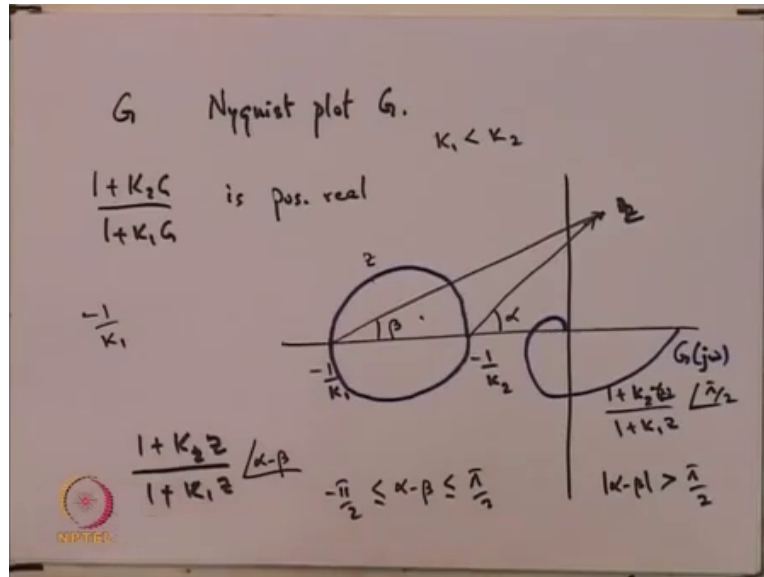 G Nyquist plot G.
K₁ < K₂
1 + K₂G
1 + K₁G
is pos. real
z
z
β
α
-1/K₁
-1/K₁
-1/K₂
G(jω)
1 + K₂z
1 + K₁z
∠π/2
1 + K₂z
1 + K₁z
∠α-β
-π/2 ≤ α-β ≤ π/2
|α-β| > π/2
NPTEL